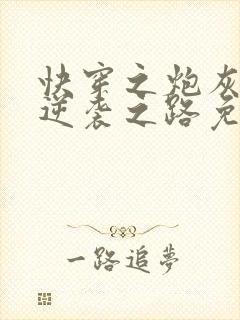 快穿之炮灰
逆袭之路免
一路追夢